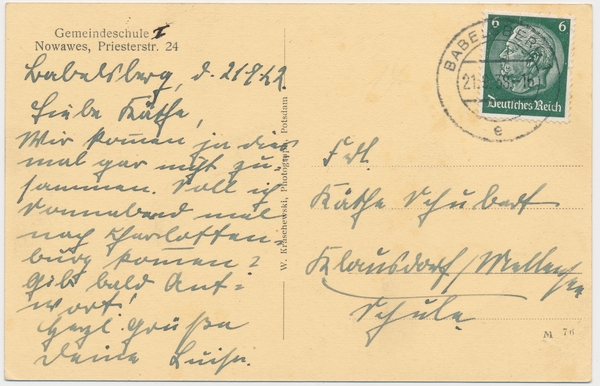 Gemeindeschule I
Nowawes, Priesterstr. 24
Babelsberg, d. 21.9.
Liebe Käthe,
Wir kommen ja dies
mal gar nicht zu-
sammen. Soll ich
Sonnabend mal
nach Charlotten-
burg kommen?
Gib bald Ant-
wort!
Herzl. Grüße
Deine Luise.
W. Kraschewski, Photograph, Potsdam
BABELSBERG
21.9.
e
6 6
Deutsches Reich
Frl.
Käthe Schubert
Klausdorf/Mellensee
Schule
M 76